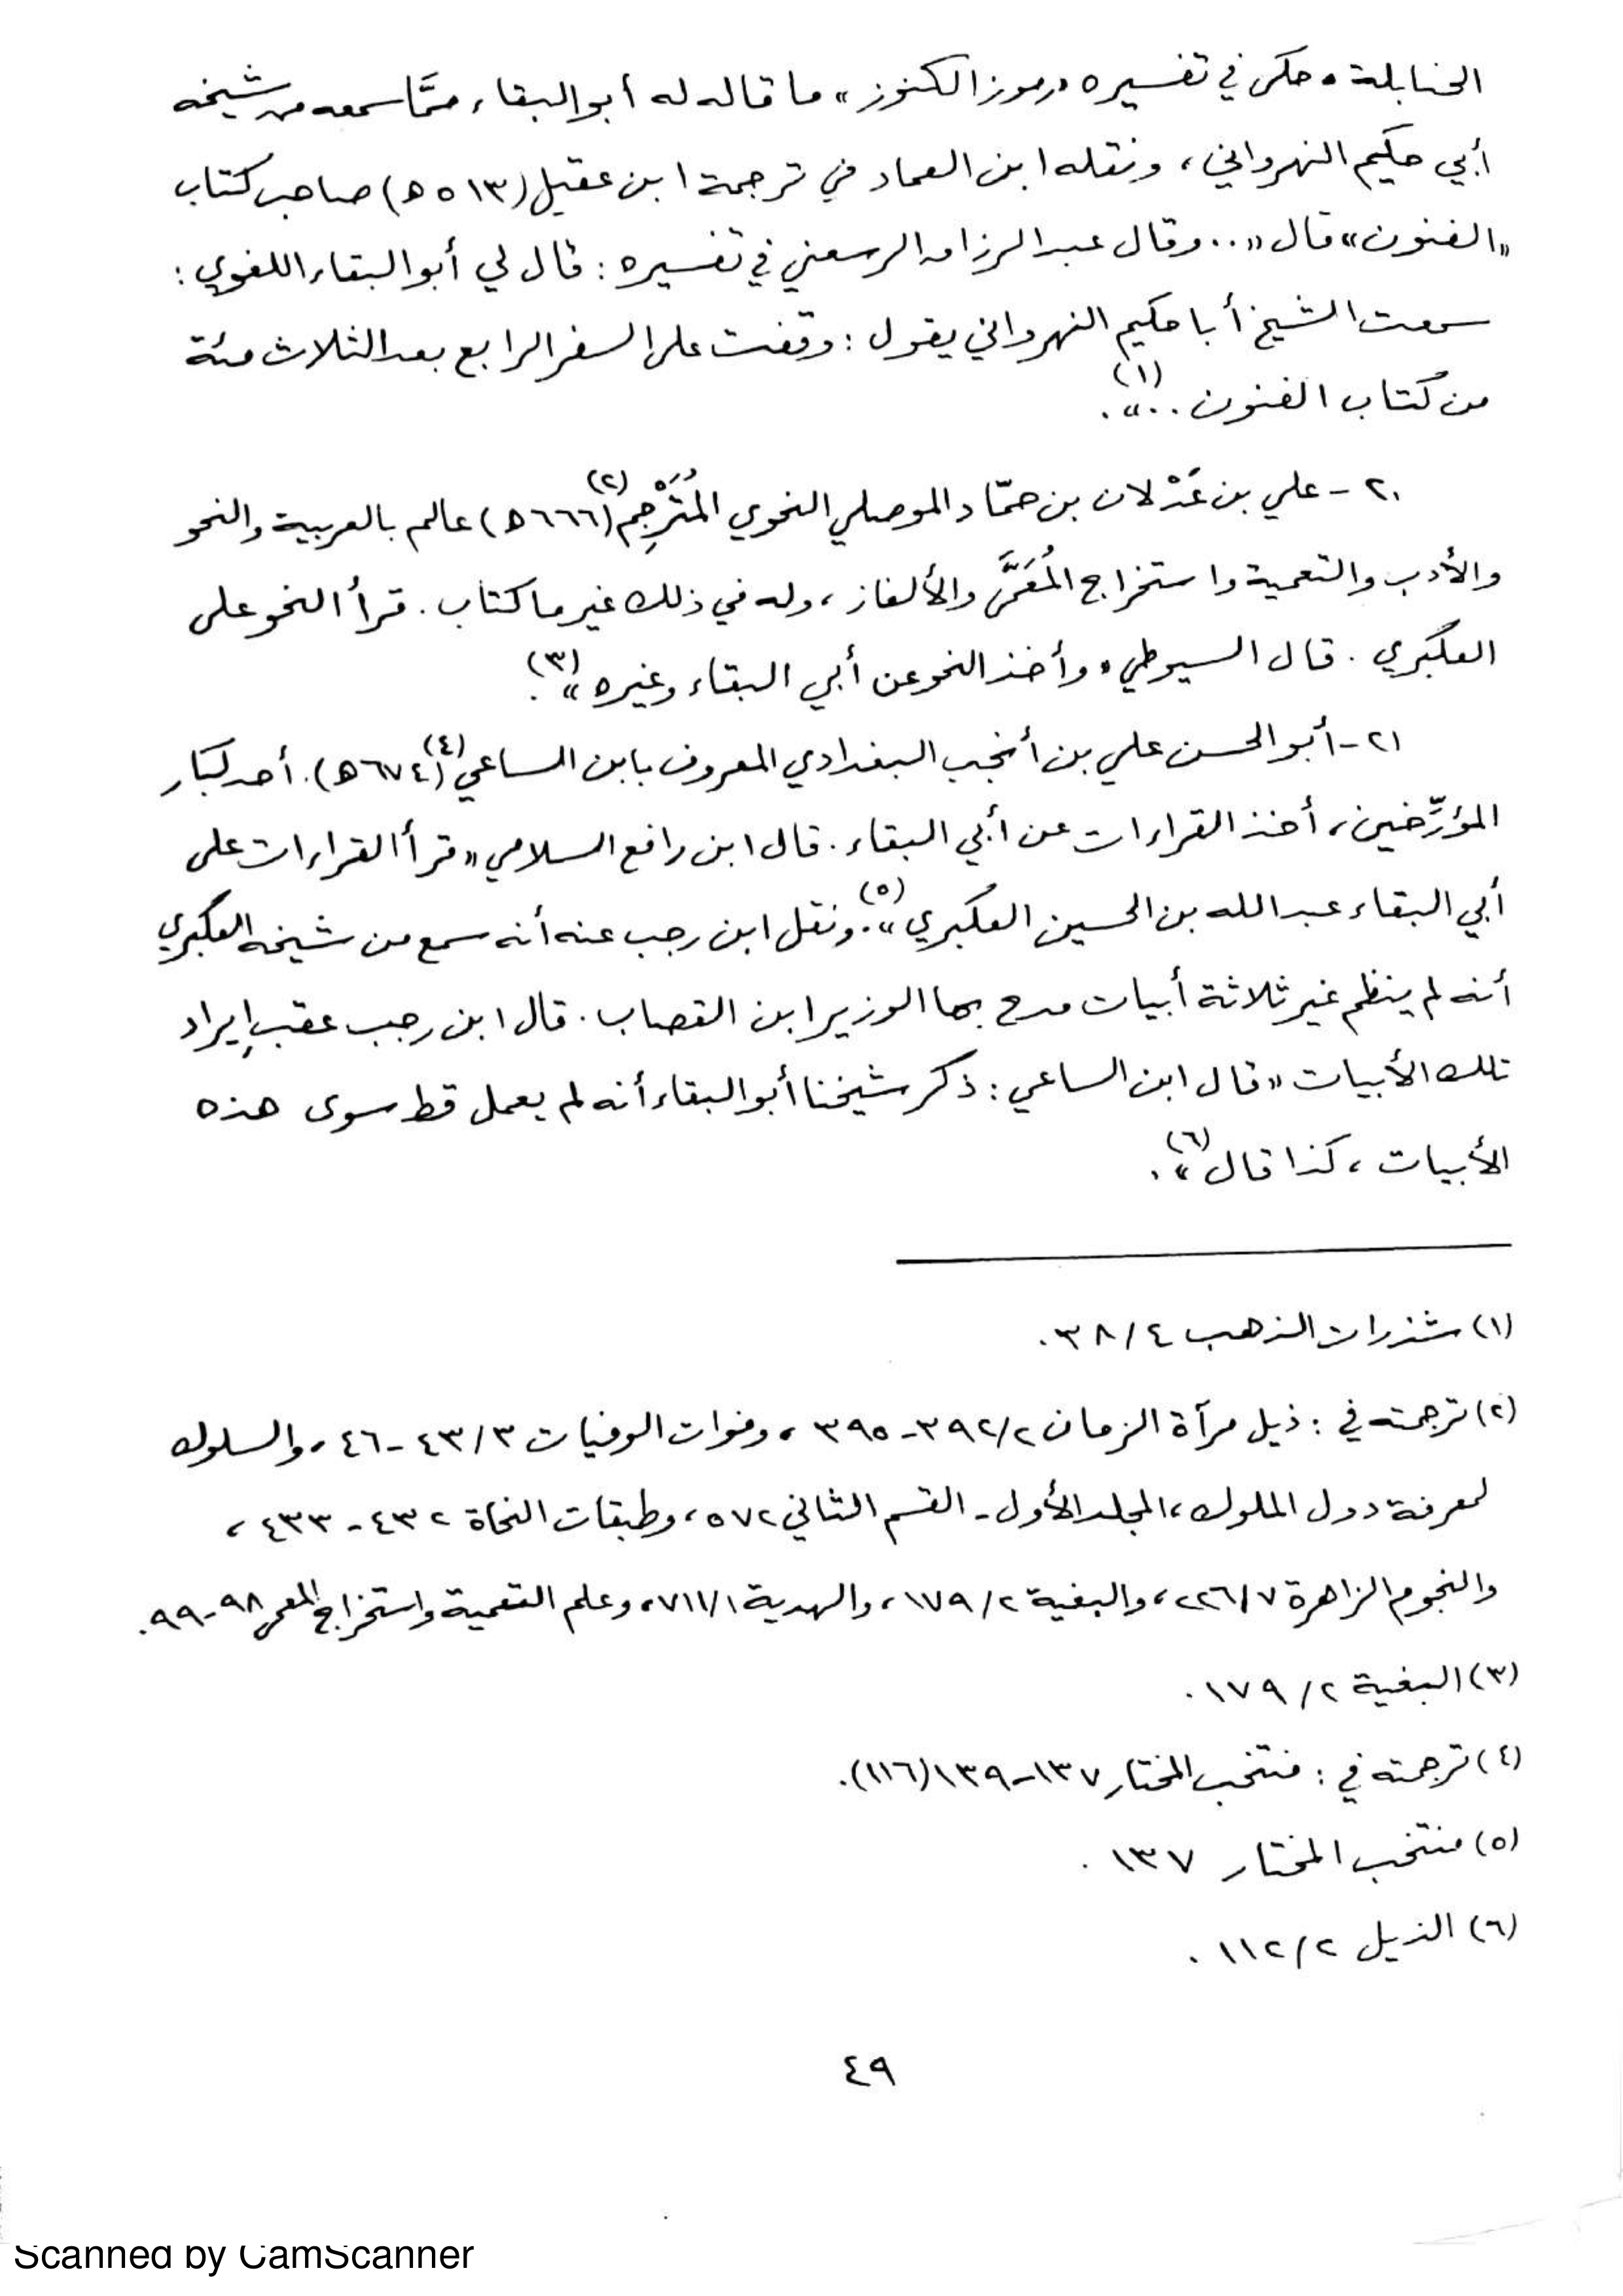 الحنابلة. حكى في تفسيره «رموز الكنوز» ما قاله له أبو البقاء، ممَّا سمعه من شيخه
أبي حكيم النهرواني، ونقله ابن العماد في ترجمة ابن عقيل (٥١٣ه) صاحب كتاب
«الفنون» قال «.. وقال عبد الرزاق الرسعني في تفسيره: قال لي أبو البقاء اللغوي:
سمعت الشيخ أبا حكيم النهرواني يقول: وقفت على السفر الرابع بعد الثلاث مئة
من كتاب الفنون ..»(١).
٢٠- علي بن عَدْلان بن حمّاد الموصلي النحوي المُتَرْجِم(٢) (٦٦٦ه) عالم بالعربية والنحو
والأدب والتعمية واستخراج المُعَمَّى والألغاز، وله في ذلك غير ما كتاب. قرأ النحو على
العكبري. قال السيوطي «وأخذ النحو عن أبي البقاء وغيره»(٣).
٢١- أبو الحسن علي بن أنجب البغدادي المعروف بابن الساعي(٤) (٦٧٤ه). أحد كبار
المؤرِّخين، أخذ القراءات عن أبي البقاء. قال ابن رافع السلامي «قرأ القراءات على
أبي البقاء عبد الله بن الحسين العكبري»(٥). ونقل ابن رجب عنه أنه سمع من شيخه العكبري
أنه لم ينظم غير ثلاثة أبيات مدح بها الوزير ابن القصاب. قال ابن رجب عقب إيراد
تلك الأبيات «قال ابن الساعي: ذكر شيخنا أبو البقاء أنه لم يعمل قط سوى هذه
الأبيات، كذا قال»(٦).
(١) شذرات الذهب ٤/٣٨.
(٢) ترجمته في: ذيل مرآة الزمان ٢/٣٩٢-٣٩٥، وفوات الوفيات ٣/٤٣-٤٦، والسلوك
لمعرفة دول الملوك، المجلد الأول- القسم الثاني ٥٧٢، وطبقات النحاة ٤٣٢-٤٣٣،
والنجوم الزاهرة ٧/٢٢٦، والبغية ٢/١٧٩، والهدية ١/٧١١، وعلم التعمية واستخراج المعمى ٩٨-٩٩.
(٣) البغية ٢/١٧٩.
(٤) ترجمته في: منتخب المختار ١٣٧-١٣٩(١١٦).
(٥) منتخب المختار ١٣٧.
(٦) الذيل ٢/١١٢.
٤٩
Scanned by CamScanner